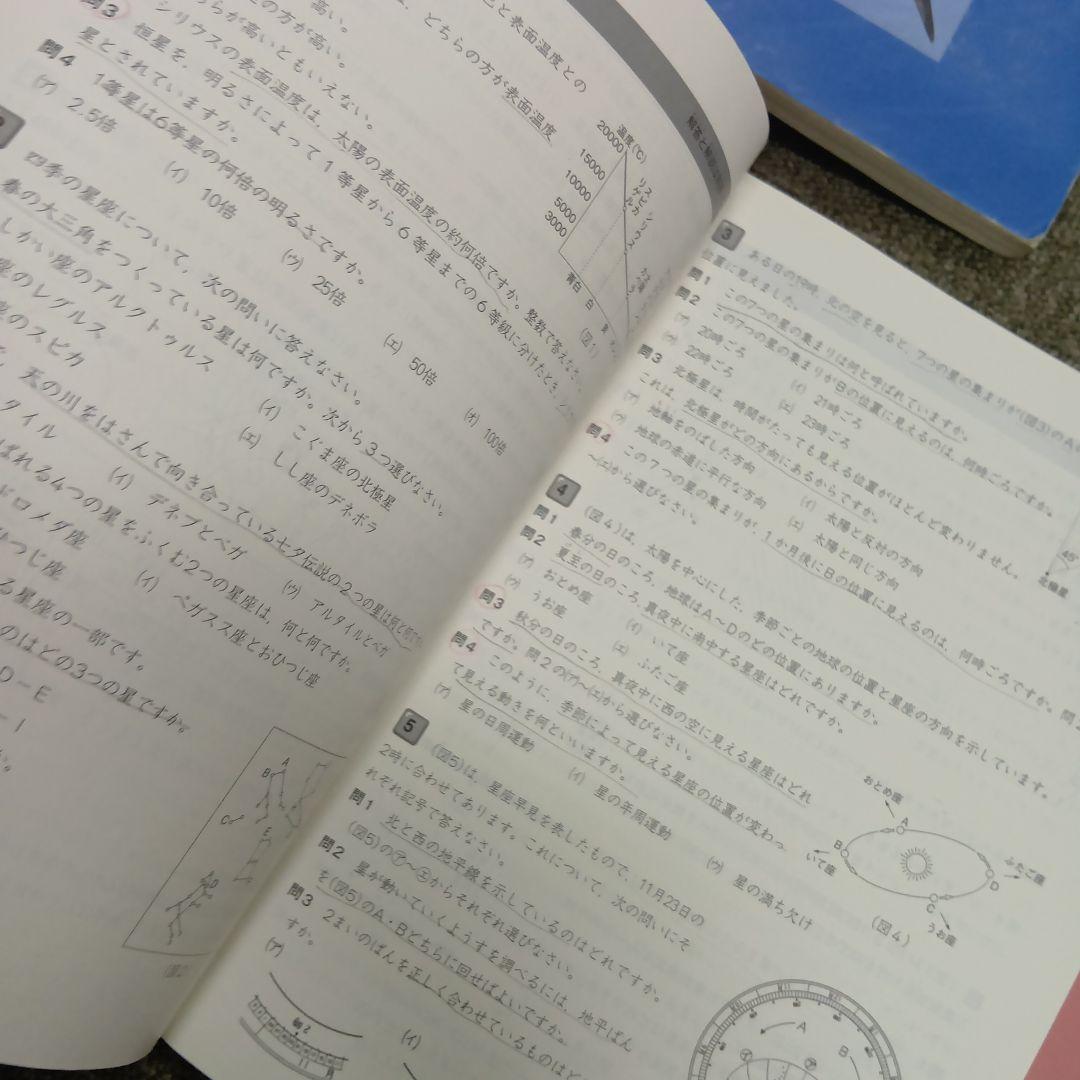 と表面温度との
、どちらの方が表面温度
高い。
の方が高い。
ちらが高いともいえない。
問3 シリウスの表面温度は、太陽の表面温度の約何倍ですか。整数で答えなさい。
問4 恒星を、明るさによって1等星から6等星までの6等級に分けたとき、
星とされていますか。
1等星は6等星の何倍の明るさですか。
(ア) 2.5倍
(イ) 10倍
(ウ) 25倍
(エ) 50倍
(オ) 100倍
温度(℃)
20000
15000
10000
5000
3000
リゲル
スピカ
シリウス
青白
白
黄
(図1)
四季の星座について、次の問いに答えなさい。
春の大三角をつくっている星は何ですか。次から3つ選びなさい。
しかい座のアルクトゥルス
(イ) こぐま座の北極星
座のレグルス
(エ) しし座のデネボラ
座のスピカ
天の川をはさんで向き合っている七夕伝説の2つの星は何と何で
タイル
(イ) デネブとベガ
(ウ) アルタイルとベガ
ばれる4つの星をふくむ2つの星座は、何と何ですか。
ドロメダ座
(イ) ペガスス座とおひつじ座
ひつじ座
る星座の一部です。
のはどの3つの星ですか。
D－E
－I
か。
A
B
C
E
D
解答と解説
3 ある日の19時、北の空を見ると、7つの星の集まりが(図3)のA
位置に見えました。
問1 この7つの星の集まりは何と呼ばれていますか。
問2 この7つの星の集まりがBの位置に見えるのは、何時ごろですか。
(ア) 20時ごろ
(イ) 21時ごろ
(ウ) 22時ごろ
(エ) 23時ごろ
問3 北極星は、時間がたっても見える位置がほとんど変わりません。
これは、北極星がどの方向にあるからですか。
(ア) 地軸をのばした方向
(イ) 太陽と反対の方向
(ウ) 地球の赤道に平行な方向
(エ) 太陽と同じ方向
問4 この7つの星の集まりが、1か月後にBの位置に見えるのは、何時ごろですか。問
～(エ)から選びなさい。
45°
北極星
4 (図4)は、太陽を中心にした、季節ごとの地球の位置と星座の方向を示しています。
問1 春分の日のころ、地球はA～Dのどの位置にありますか。
問2 夏至の日のころ、真夜中に南中する星座はどれですか。
(ア) おとめ座
(イ) いて座
(ウ) うお座
(エ) ふたご座
問3 秋分の日のころ、真夜中に西の空に見える星座はどれ
ですか。問2の(ア)～(エ)から選びなさい。
問4 このように、季節によって見える星座の位置が変わっ
て見える動きを何といいますか。
(ア) 星の日周運動
(イ) 星の年周運動
(ウ) 星の満ち欠け
おとめ座
A
B
いて座
ふたご座
D
C
うお座
(図4)
5 (図5)は、星座早見を表したもので、11月23日の
2時に合わせてあります。これについて、次の問いにそ
れぞれ記号で答えなさい。
問1 北と西の地平線を示しているのはどれですか。
(図5)の㋐～㋓からそれぞれ選びなさい。
問2 星が動いていくようすを調べるには、地平ばん
を(図5)のA・Bどちらに回せばよいですか。
問3 2まいのばんを正しく合わせているものはど
すか。
(ア)
(イ)
A
B